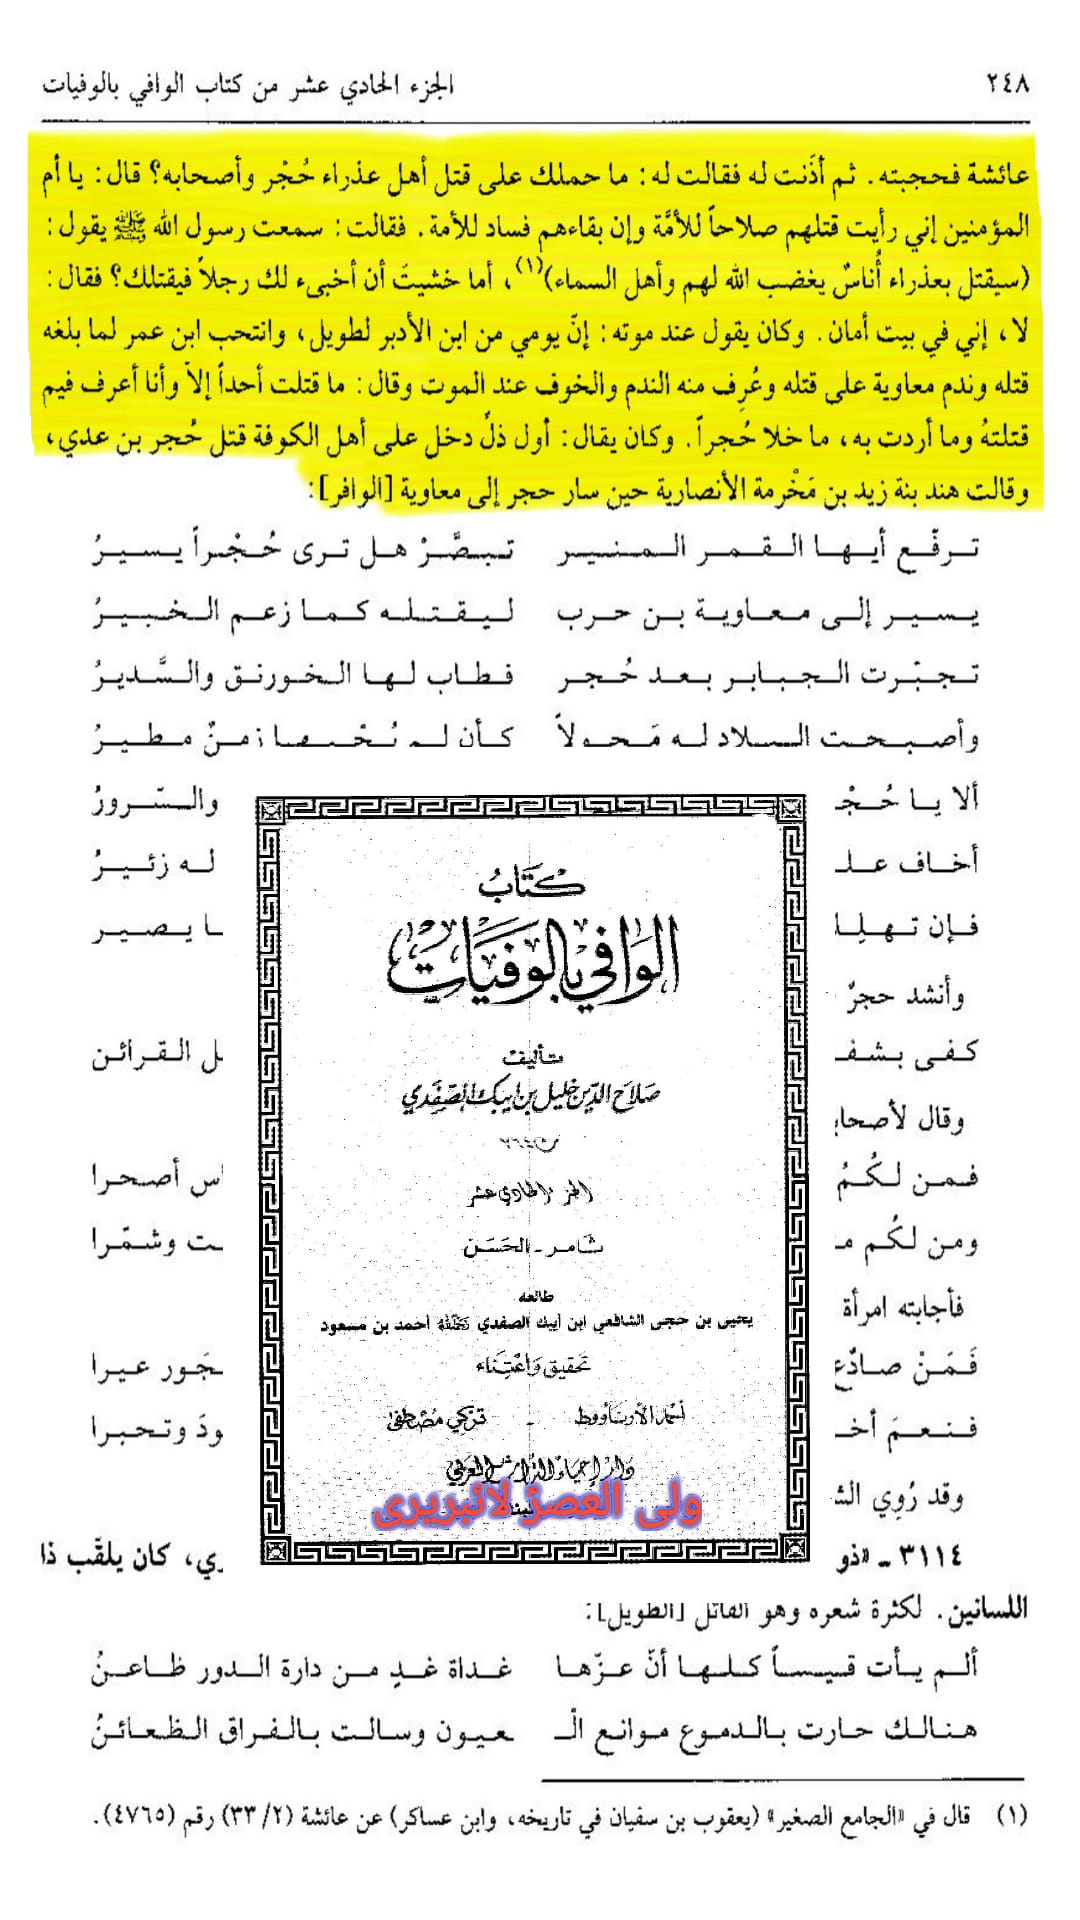 ٢٤٨ الجزء الحادي عشر من كتاب الوافي بالوفيات
عائشة فحجبته. ثم أذَنت له فقالت له: ما حملك على قتل أهل عذراء حُجْر وأصحابه؟ قال: يا أم
المؤمنين إني رأيت قتلهم صلاحاً للأمَّة وإن بقاءهم فساد للأمة. فقالت: سمعت رسول الله ﷺ يقول:
(سيقتل بعذراء أُناسٌ يغضب الله لهم وأهل السماء)(١)، أما خشيتَ أن أخبىء لك رجلاً فيقتلك؟ فقال:
لا، إني في بيت أمان. وكان يقول عند موته: إنّ يومي من ابن الأدبر لطويل، وانتحب ابن عمر لما بلغه
قتله وندم معاوية على قتله وعُرِف منه الندم والخوف عند الموت وقال: ما قتلت أحداً إلاّ وأنا أعرف فيم
قتلتهُ وما أردت به، ما خلا حُجراً. وكان يقال: أول ذلّ دخل على أهل الكوفة قتل حُجر بن عدي،
وقالت هند بنة زيد بن مَخْرمة الأنصارية حين سار حجر إلى معاوية [الوافر]:
ترفّع أيها القمر المنير تبصَّرْ هل ترى حُجْراً يسيرُ
يسير إلى معاوية بن حرب ليقتله كما زعم الخبيرُ
تجبّرت الجبابر بعد حُجر فطاب لها الخورنق والسَّديرُ
وأصبحت البلاد له مَحولاً كأن لم يُحْيها زمنٌ مطيرُ
ألا يا حُجْـ والسّرورُ
أخاف علـ له زئيرُ
فإن تهلِـ ـا يصير
وأنشد حجرٌ
كفى بشفـ ـل القرائن
وقال لأصحابـ
فمن لكُمُ ـاس أصحرا
ومن لكُم مـ ـت وشمّرا
فأجابته امرأة
فَمَنْ صادَع ـجَور عيرا
فنعمَ أخـ ـودَ وتحبرا
وقد رُوِي الشـ
٣١١٤ ـ «ذو ـري، كان يلقّب ذا
اللسانين. لكثرة شعره وهو القائل [الطويل]:
ألم يأت قيساً كلها أنّ عزّها غداة غدٍ من دارة الدور ظاعنُ
هنالك حارت بالدموع موانع الْـ ـعيون وسالت بالفراق الظعائنُ
(١) قال في «الجامع الصغير» (يعقوب بن سفيان في تاريخه، وابن عساكر) عن عائشة (٢/ ٣٣) رقم (٤٧٦٥).
كتَابُ
الوَافي بالوَفيَات
تأليف
صَلاَح الدّين خليل بن ايبك الصّفَدي
الجزء الحادي عشر
ثامر ـ الحَسَن
طالعه
يحيى بن حجى الشافعي ابن أيبك الصفدي رحمه الله أحمد بن مسعود
تحقيق وَاعْتِنَاء
أحمد الأرناؤوط ـ تزكي مُصْطفى
دَار إحيَاء التّراث العَرَبي
ولی العصرؑ لائبریری